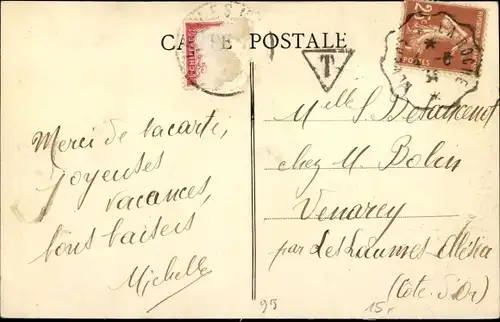 CARTE POSTALE
T
Merci de la carte,
joyeuses
vacances,
bons baisers
Michelle
Melle S.
chez M. Bolin
Venarey
par les Laumes-Alésia
(Côte d'Or)
95
15